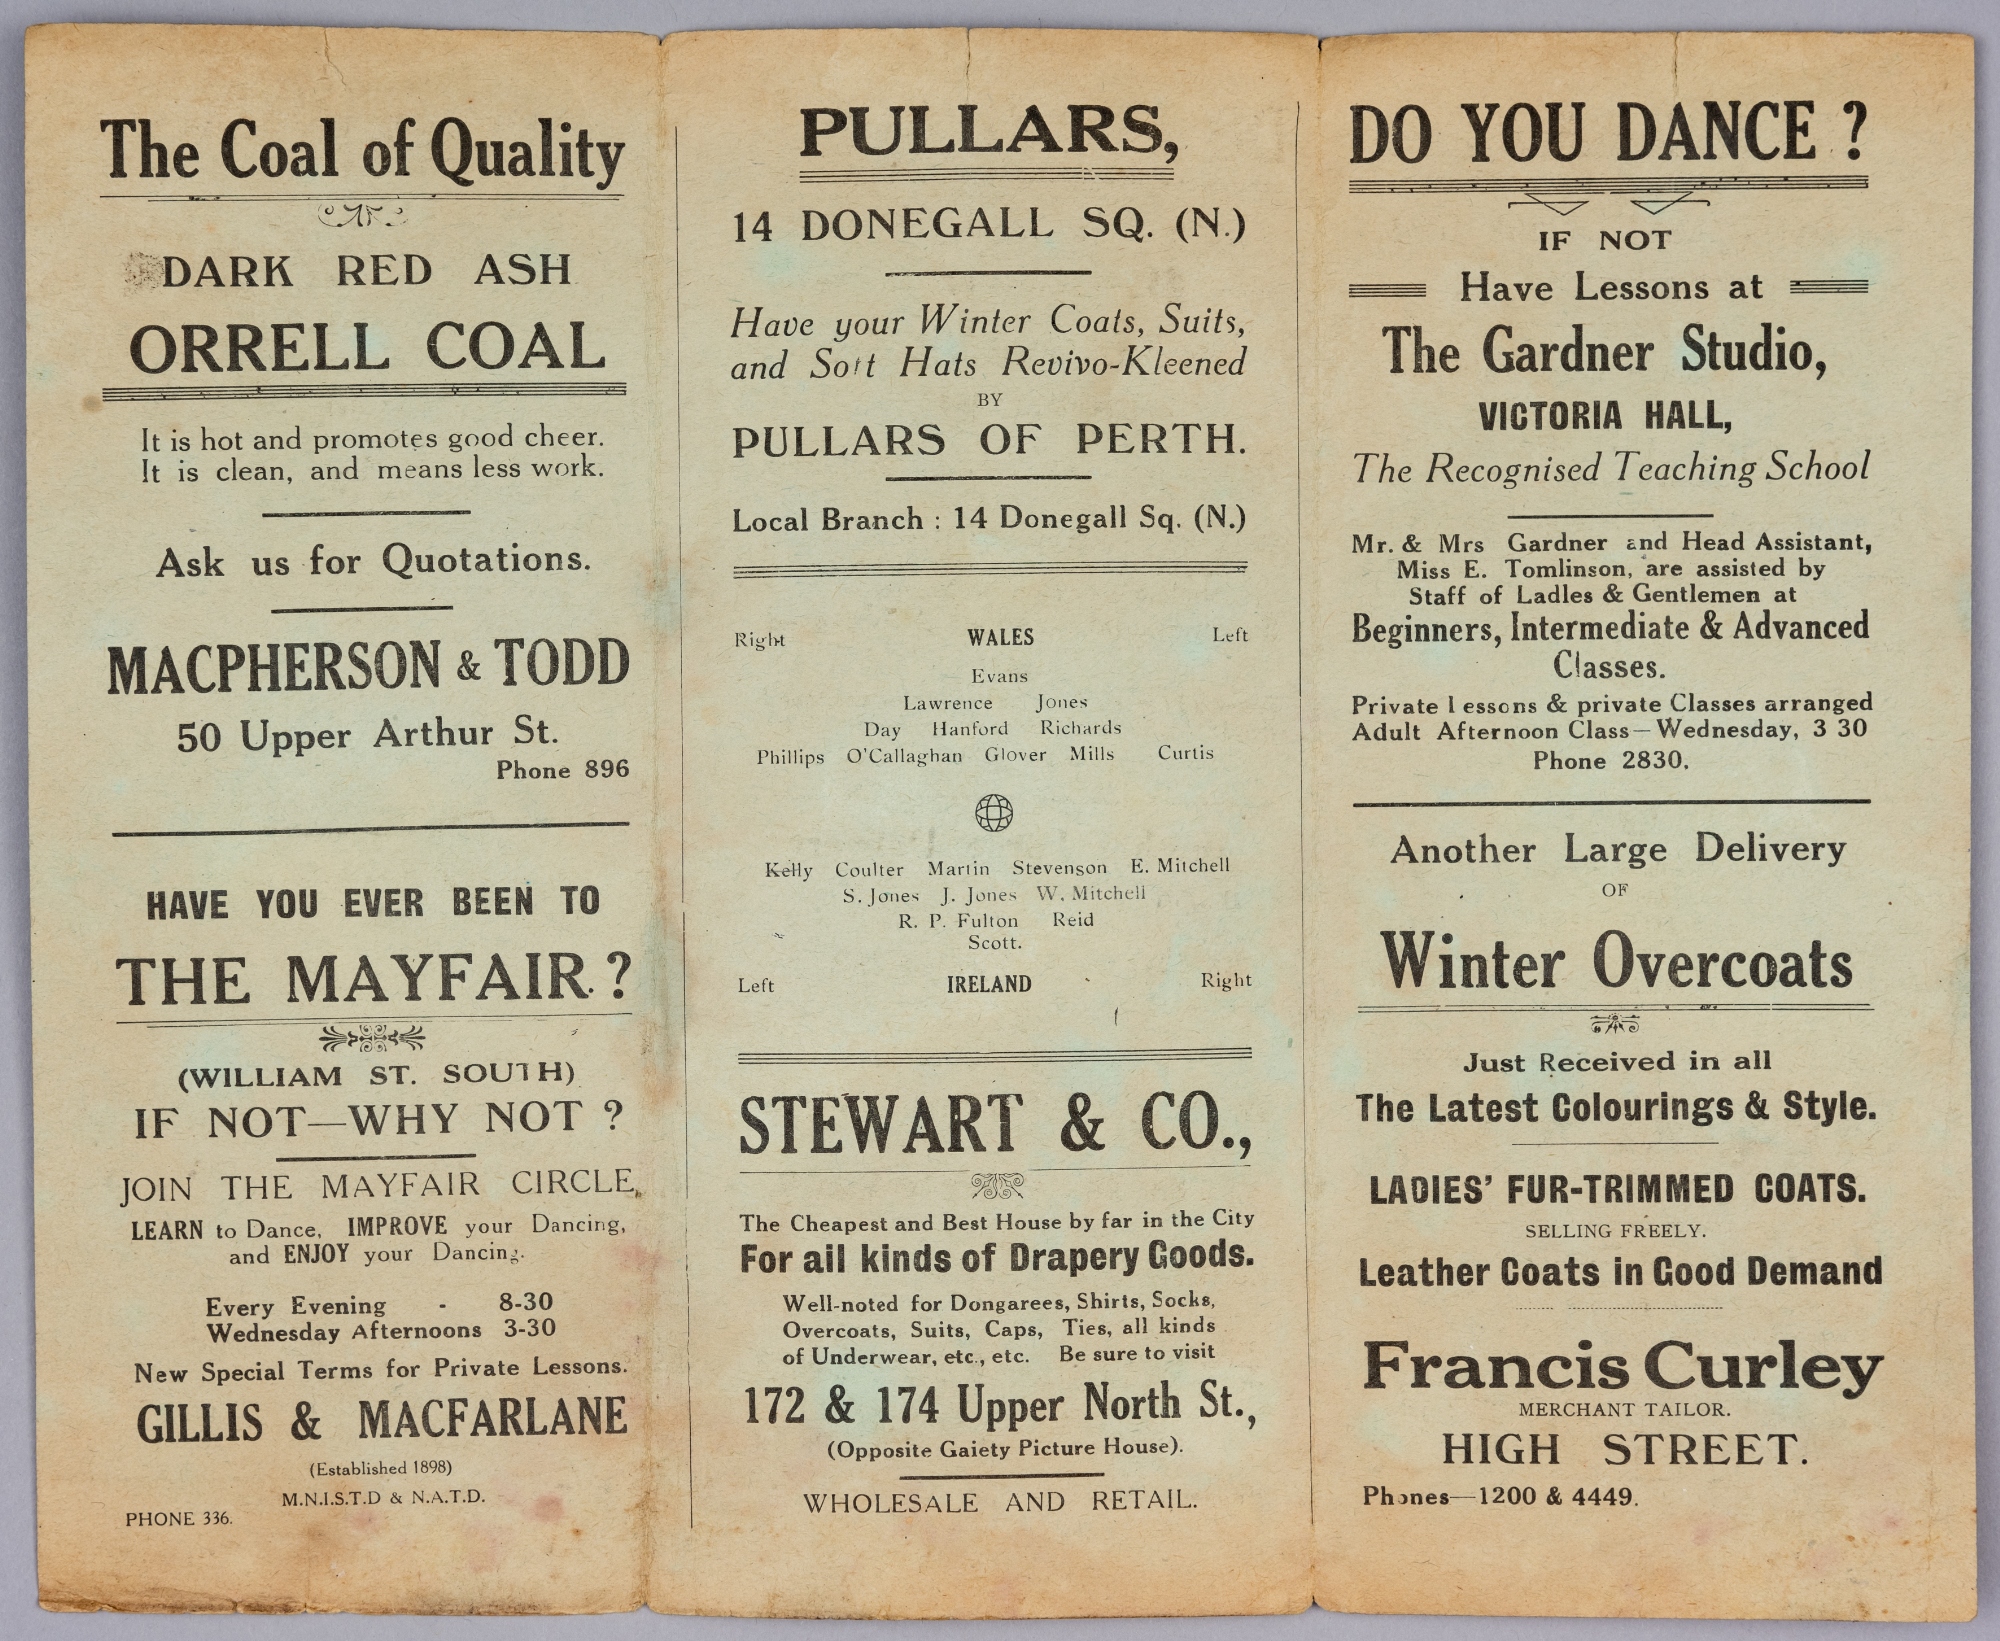 The Coal of Quality
DARK RED ASH
ORRELL COAL
It is hot and promotes good cheer.
It is clean, and means less work.
Ask us for Quotations.
MACPHERSON & TODD
50 Upper Arthur St.
Phone 896
HAVE YOU EVER BEEN TO
THE MAYFAIR.?
(WILLIAM ST. SOUTH)
IF NOT—WHY NOT ?
JOIN THE MAYFAIR CIRCLE,
LEARN to Dance, IMPROVE your Dancing,
and ENJOY your Dancing.
Every Evening - 8-30
Wednesday Afternoons 3-30
New Special Terms for Private Lessons.
GILLIS & MACFARLANE
(Established 1898)
M.N.I.S.T.D & N.A.T.D.
PHONE 336.
PULLARS,
14 DONEGALL SQ. (N.)
Have your Winter Coats, Suits,
and Soft Hats Revivo-Kleened
BY
PULLARS OF PERTH.
Local Branch : 14 Donegall Sq. (N.)
Right WALES Left
Evans
Lawrence Jones
Day Hanford Richards
Phillips O'Callaghan Glover Mills Curtis
Kelly Coulter Martin Stevenson E. Mitchell
S. Jones J. Jones W. Mitchell
R. P. Fulton Reid
Scott.
Left IRELAND Right
STEWART & CO.,
The Cheapest and Best House by far in the City
For all kinds of Drapery Goods.
Well-noted for Dongarees, Shirts, Socks,
Overcoats, Suits, Caps, Ties, all kinds
of Underwear, etc., etc. Be sure to visit
172 & 174 Upper North St.,
(Opposite Gaiety Picture House).
WHOLESALE AND RETAIL.
DO YOU DANCE ?
IF NOT
Have Lessons at
The Gardner Studio,
VICTORIA HALL,
The Recognised Teaching School
Mr. & Mrs Gardner and Head Assistant,
Miss E. Tomlinson, are assisted by
Staff of Ladles & Gentlemen at
Beginners, Intermediate & Advanced
Classes.
Private lessons & private Classes arranged
Adult Afternoon Class—Wednesday, 3 30
Phone 2830.
Another Large Delivery
OF
Winter Overcoats
Just Received in all
The Latest Colourings & Style.
LADIES' FUR-TRIMMED COATS.
SELLING FREELY.
Leather Coats in Good Demand
Francis Curley
MERCHANT TAILOR.
HIGH STREET.
Phones—1200 & 4449.